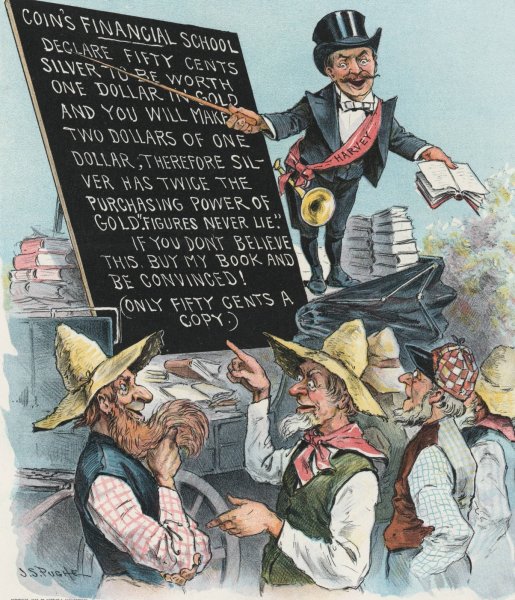 COIN'S FINANCIAL SCHOOL
DECLARE FIFTY CENTS
SILVER TO BE WORTH
ONE DOLLAR IN GOLD
AND YOU WILL MAKE
TWO DOLLARS OF ONE
DOLLAR, THEREFORE SIL-
VER HAS TWICE THE
PURCHASING POWER OF
GOLD. "FIGURES NEVER LIE."
IF YOU DON'T BELIEVE
THIS, BUY MY BOOK AND
BE CONVINCED!
(ONLY FIFTY CENTS A
COPY.)
HARVEY
J.S. PUGHE